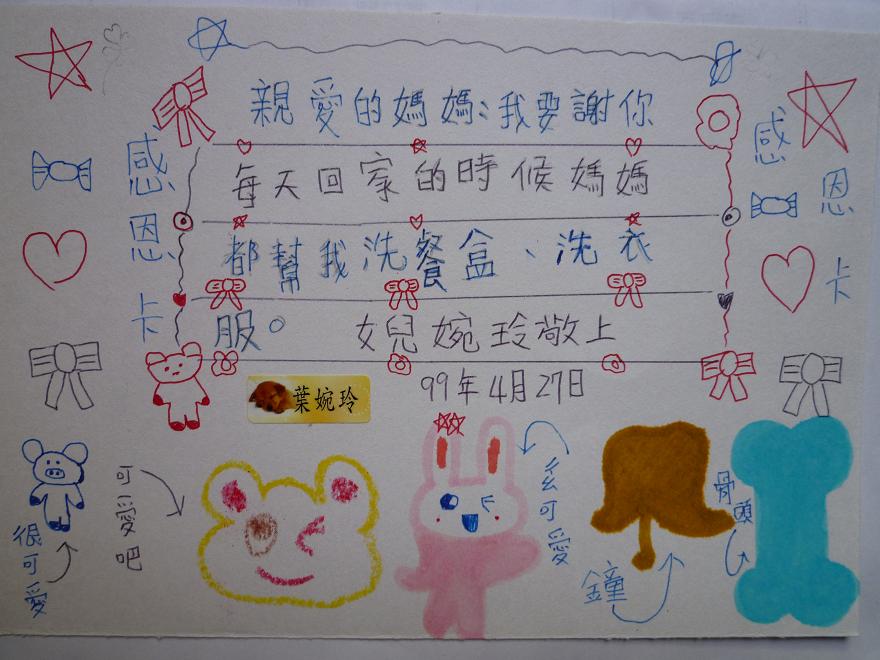 親愛的媽媽:我要謝你
每天回家的時候媽媽
都幫我洗餐盒、洗衣
服。 女兒婉玲敬上
葉婉玲
99年4月27日
感恩卡
感恩卡
很可愛
可愛吧
可愛
鐘
骨頭